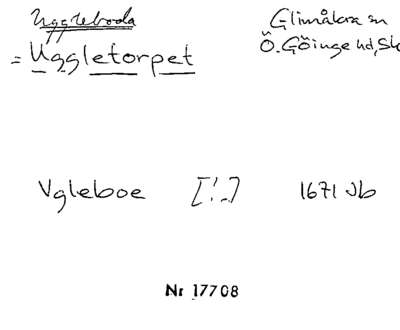 Uggleboda
= Uggletorpet
Glimåkra sn
Ö. Göinge hd, Sk
Vgleboe [!] 1671 Jb
Nr 17708